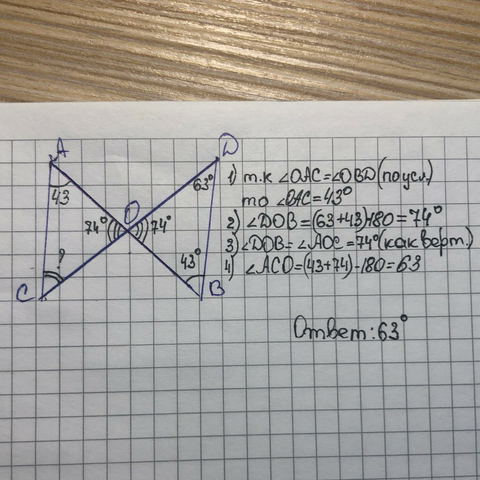 A
D
1) т.к ∠OAC=∠OBD(по усл)
43
63°
то ∠OAC=43°
O
74°
74°
2) ∠DOB=(63+43)-180=74°
3) ∠DOB=∠AOC=74°(как верт.)
?
43°
4) ∠ACO=(43+74)-180=63
C
B
Ответ:63°